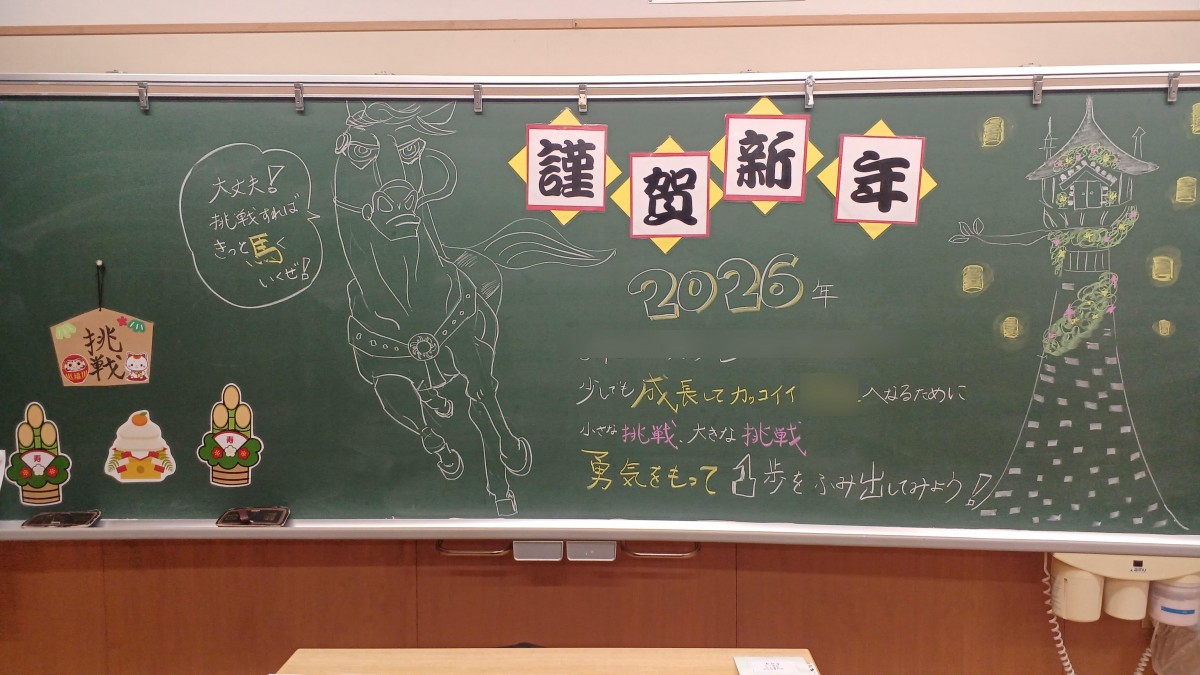 大丈夫!
挑戦すれば
きっと馬く
いくぜ!
謹賀新年
2026年
少しでも成長してカッコイイ
へなるために
小さな挑戦、大きな挑戦
勇気をもって1歩をふみ出してみよう!
挑戦
寿
寿